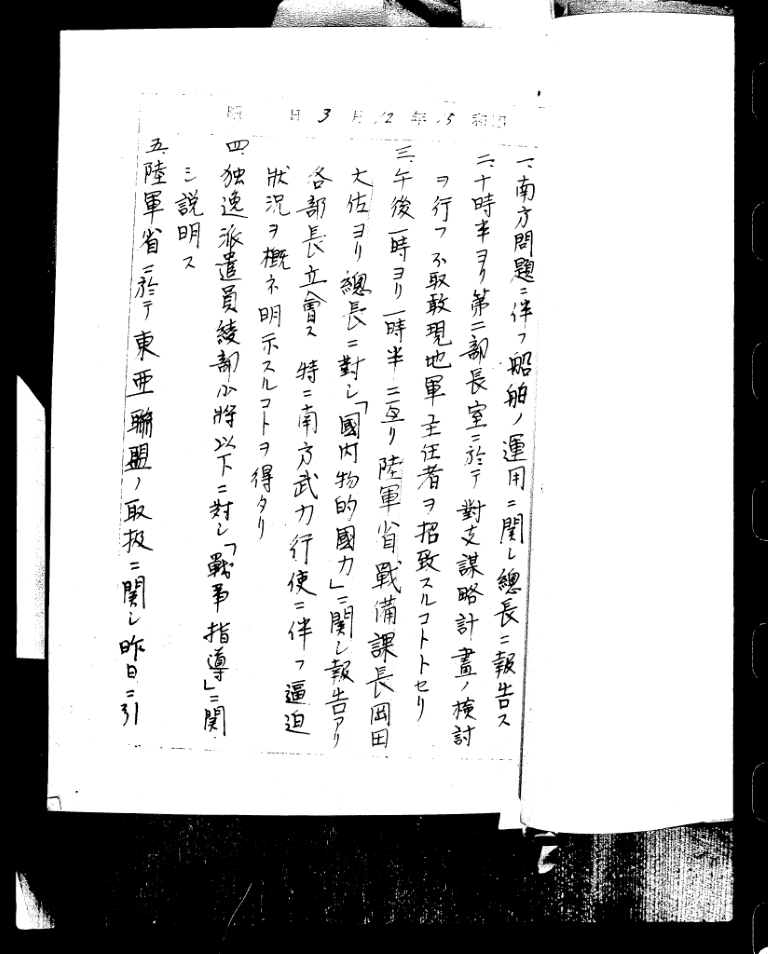 昭和15年12月3日 曜
一、南方問題ニ伴フ船舶ノ運用ニ関シ總長ニ報告ス
二、十時半ヨリ第二部長室ニ於テ對支謀略計畫ノ検討
ヲ行フ不取敢現地軍主任者ヲ招致スルコトトセリ
三、午後一時ヨリ一時半ニ亙リ陸軍省戰備課長岡田
大佐ヨリ總長ニ對シ「國内物的國力」ニ関シ報告アリ
各部長立會ス 特ニ南方武力行使ニ伴フ逼迫
狀況ヲ概ネ明示スルコトヲ得タリ
四、独逸派遣員綾部少將以下ニ対シ「戰爭指導」ニ関
シ説明ス
五、陸軍省ニ於テ東亜聯盟ノ取扱ニ関シ昨日ニ引